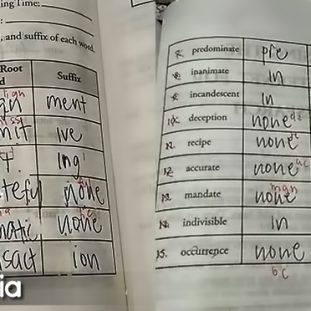 ing Time:
, and suffix of each word.
Root
Suffix
d
ment
mit ive
ing
teful none
matic none
sact ion
predominate pre
inanimate in
incandescent in
deception none de
recipe none
accurate none ac
mandate none man
N. indivisible in
15. occurrence none
ia